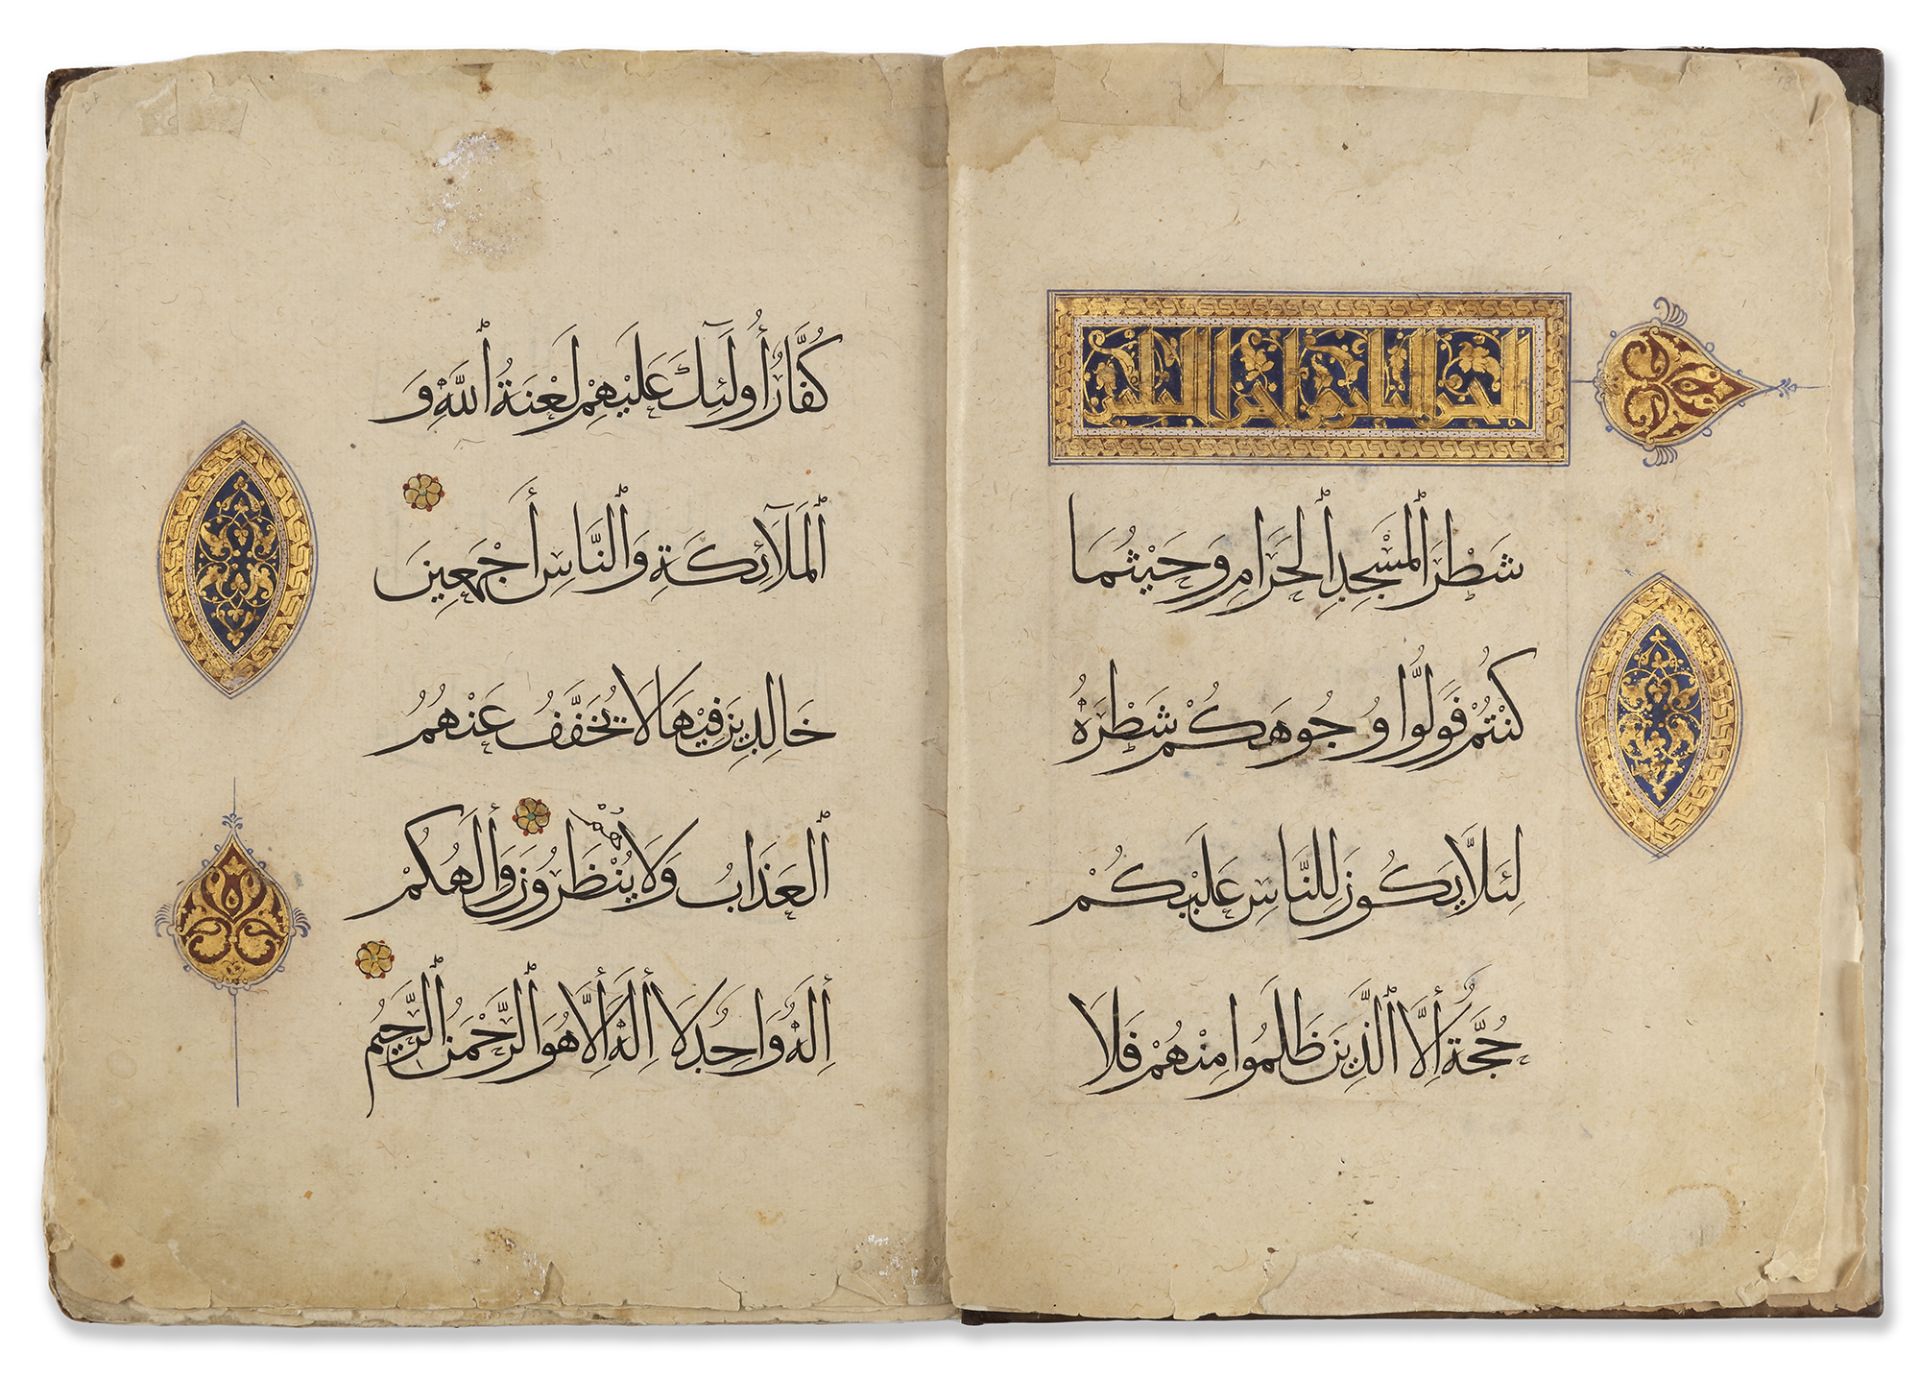 شَطْرَ ٱلْمَسْجِدِ ٱلْحَرَامِ وَحَيْثُمَا
كُنْتُمْ فَوَلُّوا وُجُوهَكُمْ شَطْرَهُ
لِئَلَّا يَكُونَ لِلنَّاسِ عَلَيْكُمْ
حُجَّةٌ إِلَّا ٱلَّذِينَ ظَلَمُوا مِنْهُمْ فَلَا
كُفَّارٌ أُولَٓئِكَ عَلَيْهِمْ لَعْنَةُ ٱللَّهِ وَ
ٱلْمَلَآئِكَةِ وَٱلنَّاسِ أَجْمَعِينَ
خَالِدِينَ فِيْهَا لَا يُخَفَّفُ عَنْهُمُ
ٱلْعَذَابُ وَلَا هُمْ يُنْظَرُونَ وَإِلَهُكُمْ
إِلَهٌ وَاحِدٌ لَا إِلَهَ إِلَّا هُوَ ٱلرَّحْمَنُ ٱلرَّحِيمُ